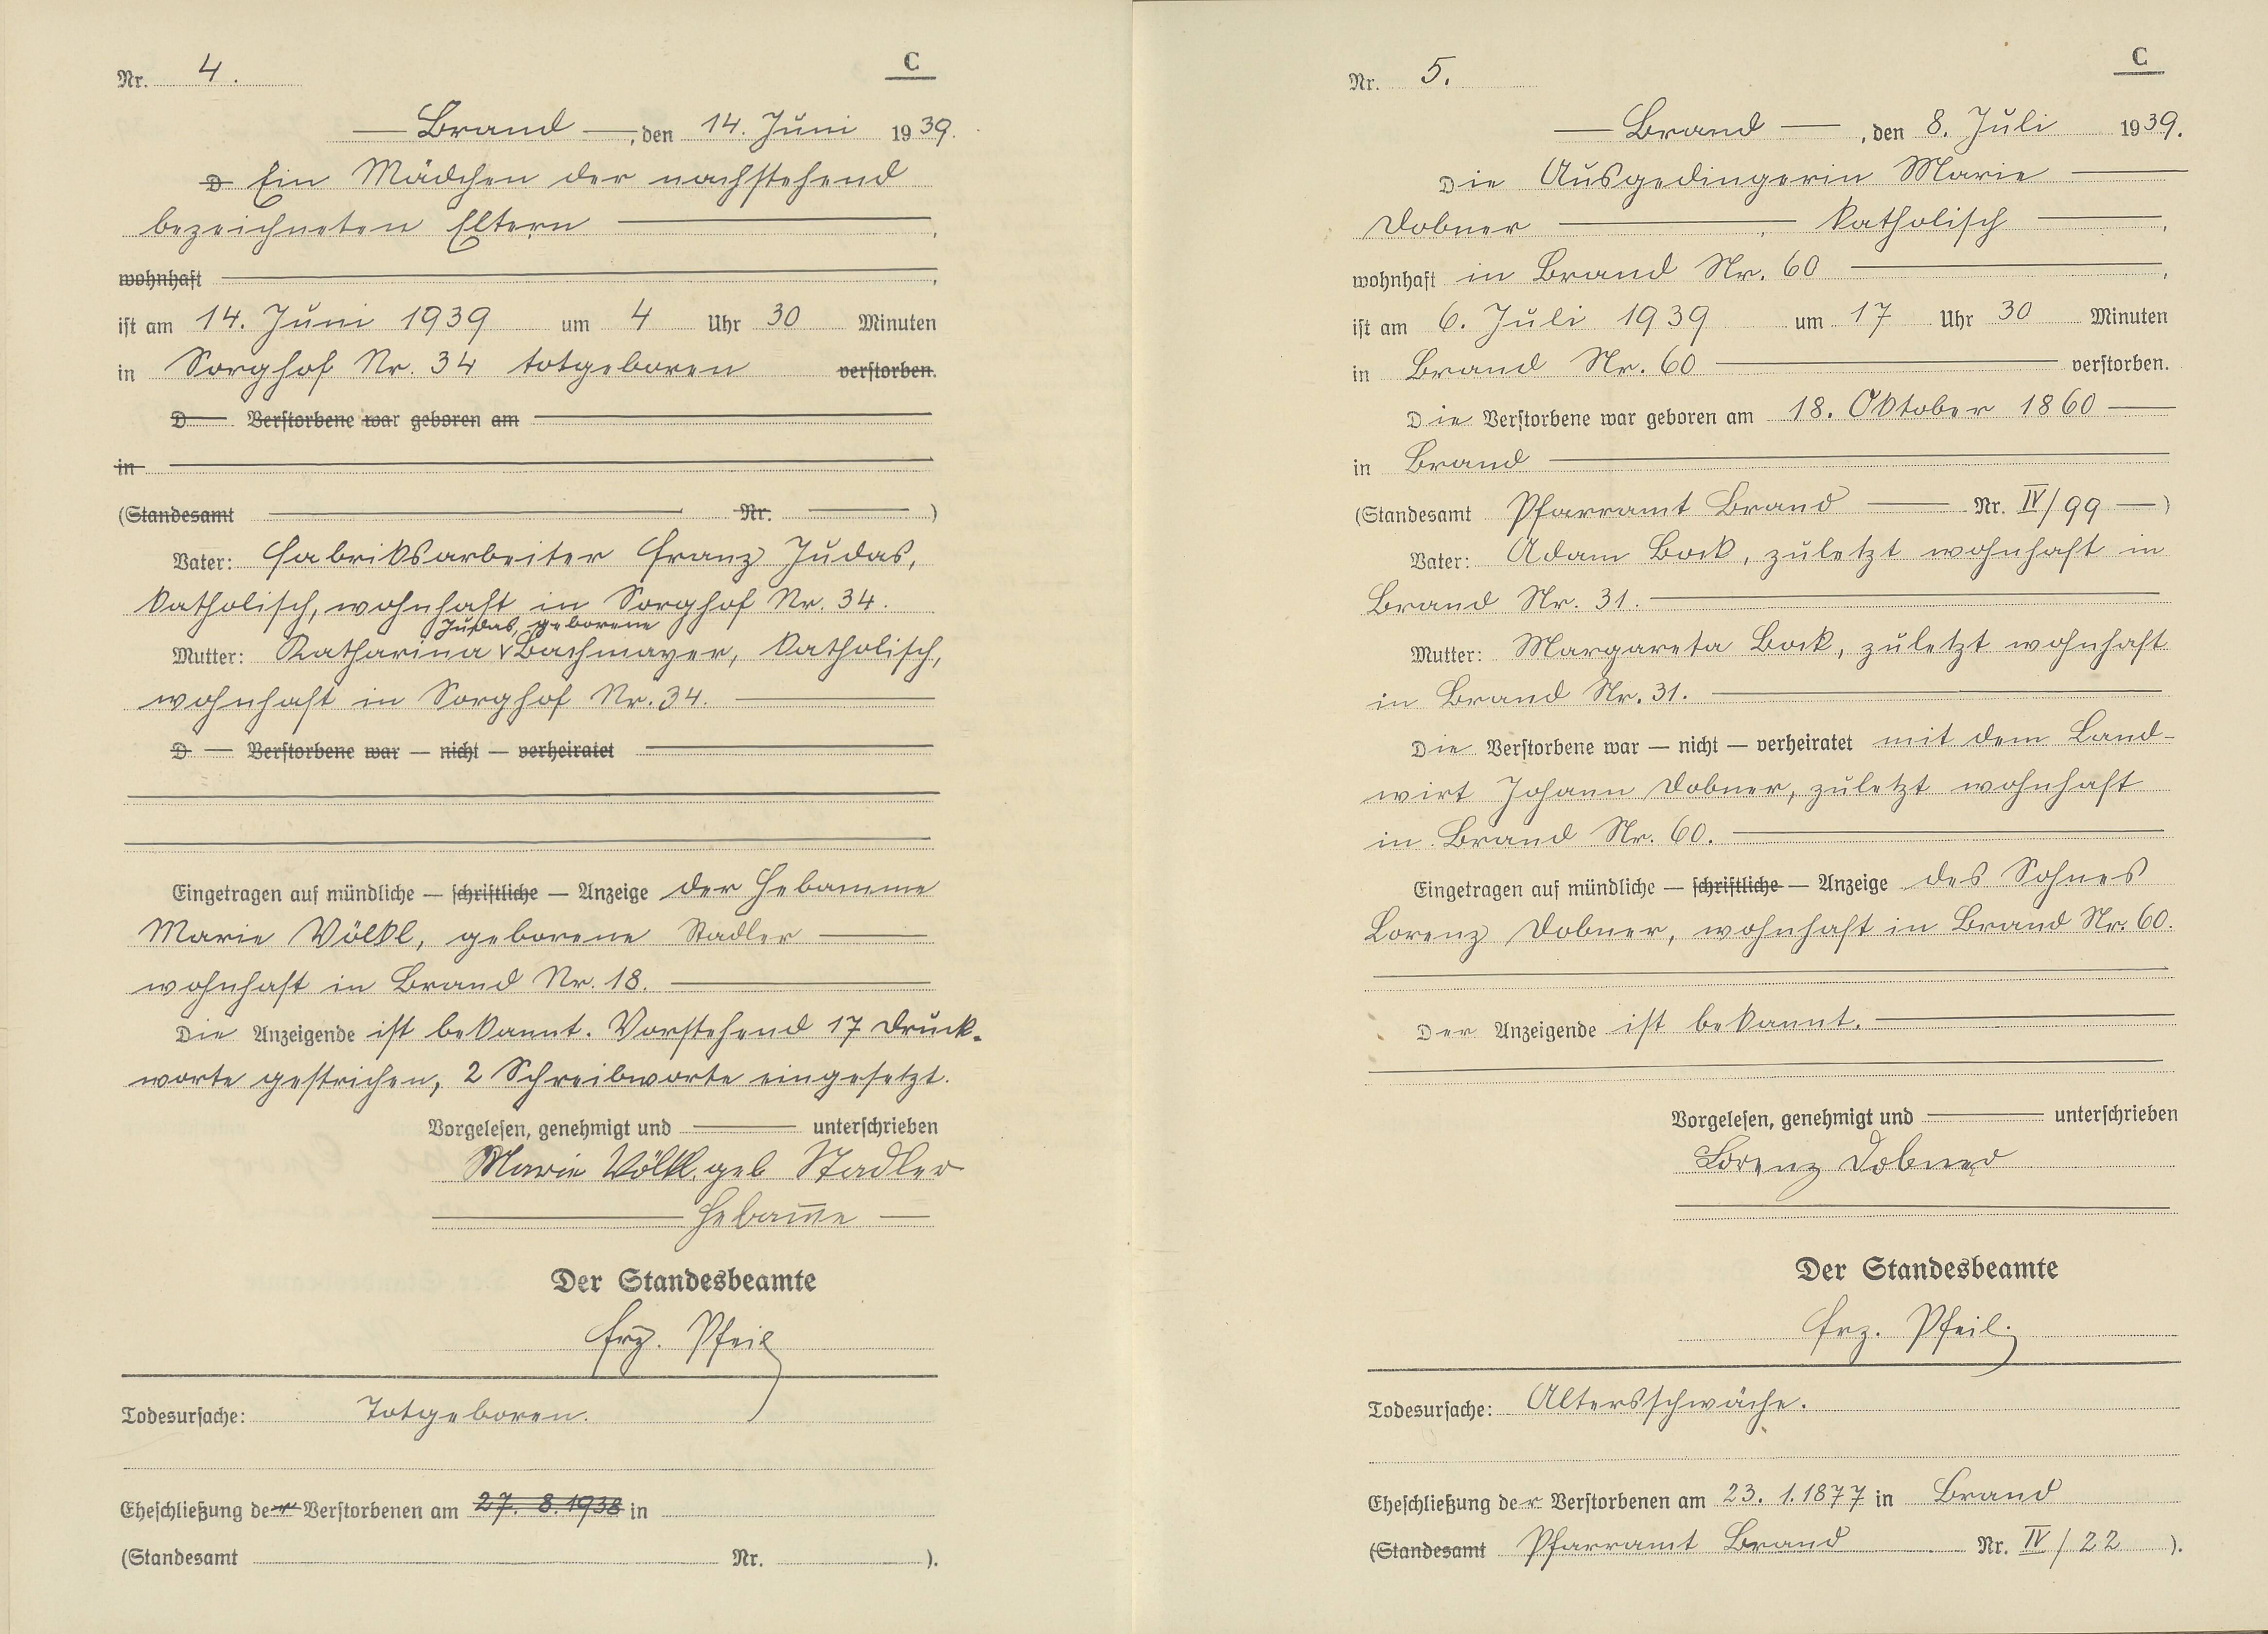 Nr. 4. C
— Brand —, den 14. Juni 1939.
D Ein Mädchen der nachstehend
bezeichneten Eltern —,
wohnhaft —,
ist am 14. Juni 1939 um 4 Uhr 30 Minuten
in Sorghof Nr. 34 totgeboren verstorben.
D — Verstorbene war geboren am —
in —
(Standesamt — Nr. —)
Vater: Fabriksarbeiter Franz Judas,
katholisch, wohnhaft in Sorghof Nr. 34.
Judas, geborene
Mutter: Katharina Bachmayer, katholisch,
wohnhaft in Sorghof Nr. 34. —
D — Verstorbene war — nicht — verheiratet —
Eingetragen auf mündliche — schriftliche — Anzeige der Hebamme
Marie Völkl, geborene Stadler —
wohnhaft in Brand Nr. 18. —
Die Anzeigende ist bekannt. Vorstehend 17 Druck-
worte gestrichen, 2 Schreibworte eingesetzt.
Vorgelesen, genehmigt und — unterschrieben
Marie Völkl. geb Stadler
— Hebam̄e —
Der Standesbeamte
Frz. Pfeil
Todesursache: Totgeboren.
Eheschließung der Verstorbenen am 27. 8. 1938 in
(Standesamt Nr. ).
Nr. 5. C
— Brand —, den 8. Juli 1939.
Die Ausgedingerin Marie —
Dobner —, katholisch —,
wohnhaft in Brand Nr. 60 —,
ist am 6. Juli 1939 um 17 Uhr 30 Minuten
in Brand Nr. 60 — verstorben.
Die Verstorbene war geboren am 18. Oktober 1860 —
in Brand —
(Standesamt Pfarramt Brand — Nr. IV/99 —)
Vater: Adam Bock, zuletzt wohnhaft in
Brand Nr. 31. —
Mutter: Margareta Bock, zuletzt wohnhaft
in Brand Nr. 31. —
Die Verstorbene war — nicht — verheiratet mit dem Land-
wirt Johann Dobner, zuletzt wohnhaft
in Brand Nr. 60. —
Eingetragen auf mündliche — schriftliche — Anzeige des Sohnes
Lorenz Dobner, wohnhaft in Brand Nr. 60.
Der Anzeigende ist bekannt. —
Vorgelesen, genehmigt und — unterschrieben
Lorenz Dobner
Der Standesbeamte
Frz. Pfeil.
Todesursache: Altersschwäche.
Eheschließung der Verstorbenen am 23. 1. 1877 in Brand
(Standesamt Pfarramt Brand Nr. IV/22 ).